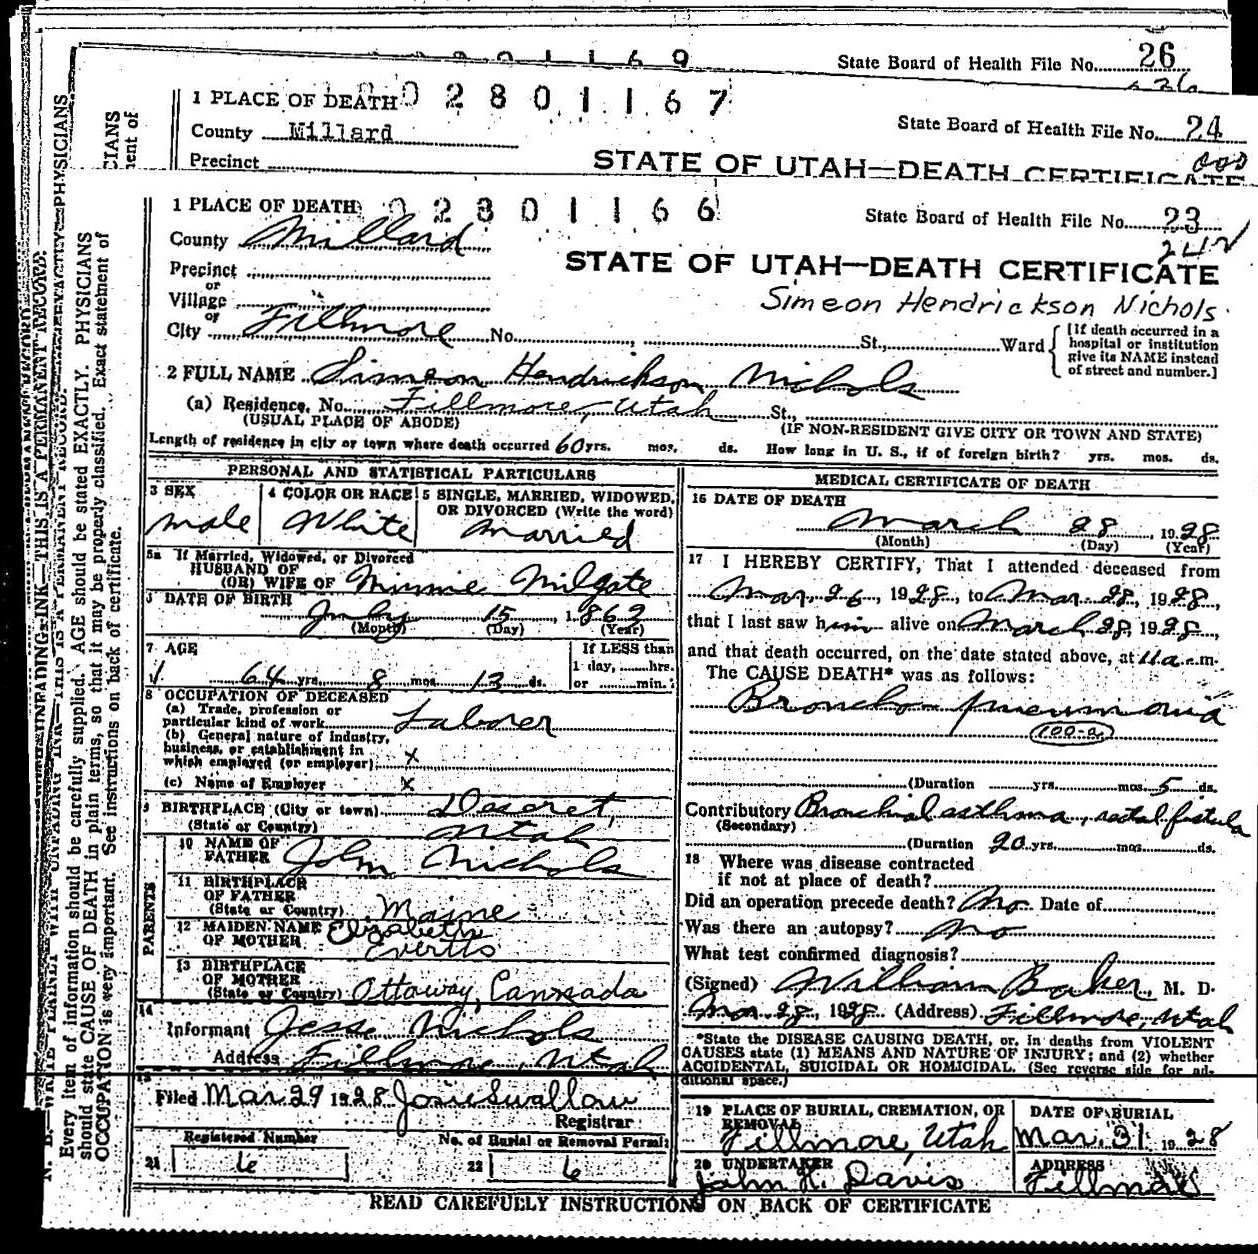 2801169
State Board of Health File No. 26
1 PLACE OF DEATH 02801167
County Millard
State Board of Health File No. 24
Precinct
STATE OF UTAH—DEATH CERTIFICATE
1 PLACE OF DEATH 02801166
State Board of Health File No. 23
County Millard
Precinct
or
STATE OF UTAH—DEATH CERTIFICATE
Simeon Hendrickson Nichols
Village
or
City Fillmore No. St., Ward
[If death occurred in a
hospital or institution
give its NAME instead
of street and number.]
2 FULL NAME Simeon Hendrickson Nichols
(a) Residence, No. Fillmore, Utah St.,
(USUAL PLACE OF ABODE) (IF NON-RESIDENT GIVE CITY OR TOWN AND STATE)
Length of residence in city or town where death occurred 60 yrs. mos. ds. How long in U. S., if of foreign birth? yrs. mos. ds.
PERSONAL AND STATISTICAL PARTICULARS
3 SEX
male
4 COLOR OR RACE
White
5 SINGLE, MARRIED, WIDOWED,
OR DIVORCED (Write the word)
married
5a If Married, Widowed, or Divorced
HUSBAND OF
(OR) WIFE OF Minnie Milgate
DATE OF BIRTH
July 15, 1863
(Month) (Day) (Year)
7 AGE
64 yrs. 8 mos. 13 ds.
If LESS than
1 day, hrs.
or min.
8 OCCUPATION OF DECEASED
(a) Trade, profession or
particular kind of work Laborer
(b) General nature of industry,
business, or establishment in
which employed (or employer) x
(c) Name of Employer x
9 BIRTHPLACE (City or town) Deseret,
(State or Country) Utah
PARENTS
10 NAME OF
FATHER John Nichols
11 BIRTHPLACE
OF FATHER
(State or Country) Maine
12 MAIDEN NAME Elizabeth
OF MOTHER Evertts
13 BIRTHPLACE
OF MOTHER
(State or Country) Ottoway, Cannada
14
Informant Jesse Nichols
Address Fillmore, Utah
15
Filed Mar. 29 1928 Josie Swallow
Registrar
Registered Number
21 6
No. of Burial or Removal Permit
22 6
MEDICAL CERTIFICATE OF DEATH
16 DATE OF DEATH
March 28, 1928
(Month) (Day) (Year)
17 I HEREBY CERTIFY, That I attended deceased from
Mar. 26, 1928, to Mar 28, 1928,
that I last saw him alive on March 28, 1928,
and that death occurred, on the date stated above, at 11 a.m.
The CAUSE DEATH* was as follows:
Broncho pneumonia
100-a
(Duration yrs. mos. 5 ds.
Contributory Bronchial asthma, rectal fistula
(Secondary)
(Duration 20 yrs. mos. ds.
18 Where was disease contracted
if not at place of death?
Did an operation precede death? No. Date of
Was there an autopsy? no
What test confirmed diagnosis?
(Signed) William Baker, M. D.
Mar 28, 1928. (Address) Fillmore, Utah
*State the DISEASE CAUSING DEATH, or, in deaths from VIOLENT
CAUSES state (1) MEANS AND NATURE OF INJURY; and (2) whether
ACCIDENTAL, SUICIDAL OR HOMICIDAL. (See reverse side for ad-
ditional space.)
19 PLACE OF BURIAL, CREMATION, OR
REMOVAL
Fillmore, Utah
DATE OF BURIAL
Mar. 31 1928
20 UNDERTAKER
John H. Davis
ADDRESS
Fillmore
READ CAREFULLY INSTRUCTIONS ON BACK OF CERTIFICATE
Every item of information should be carefully supplied. AGE should be stated EXACTLY. PHYSICIANS
should state CAUSE OF DEATH in plain terms, so that it may be properly classified. Exact statement of
OCCUPATION is very important. See instructions on back of certificate.